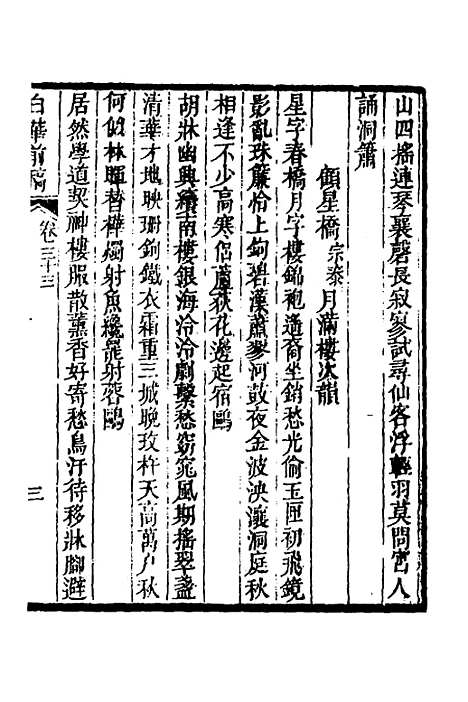 山四搖連琴襄磬長寂寥試尋仙客浮輕羽莫問宮人
誦洞簫
顧星橋宗泰月滿樓次韻
星字春橋月字樓錦袍遙裔坐銷愁光偷玉匣初飛鏡
影亂珠簾恰上鉤碧漢蕭寥河鼓夜金波泱瀼洞庭秋
相逢不少高寒侶蘆荻花邊起宿鷗
胡牀幽興續南樓銀海泠泠劇繫愁窈窕風期搖翠盞
清華才地映珊鉤鐵衣霜重三城晚玫杵天高萬户秋
何似林隈替樺燭射魚纔罷射蓉鷗
居然學道契神樓服散薰香好寄愁鳥汗待移牀腳避
白華前稿
卷三十三
三